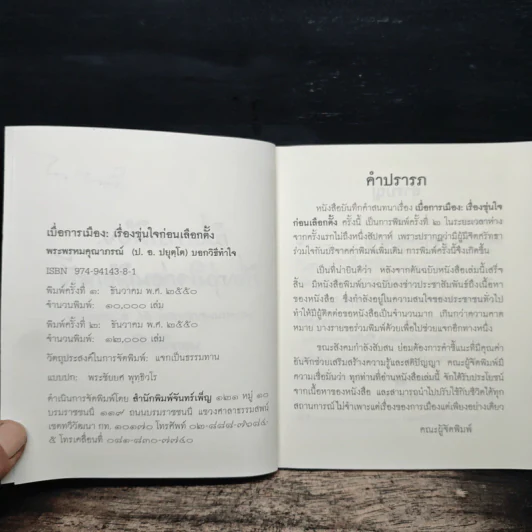 เบื่อการเมือง: เรื่องขุ่นใจก่อนเลือกตั้ง
พระพรหมคุณาภรณ์ (ป. อ. ปยุตฺโต) บอกวิธีทำใจ
ISBN 974-94143-8-1
พิมพ์ครั้งที่ ๑: ธันวาคม พ.ศ. ๒๕๕๐
จำนวนพิมพ์: ๑๐,๐๐๐ เล่ม
พิมพ์ครั้งที่ ๒: ธันวาคม พ.ศ. ๒๕๕๐
จำนวนพิมพ์: ๑๒,๐๐๐ เล่ม
วัตถุประสงค์ในการจัดพิมพ์: แจกเป็นธรรมทาน
แบบปก: พระชัยยศ พุทฺธิวโร
ดำเนินการจัดพิมพ์โดย สำนักพิมพ์จันทร์เพ็ญ ๑๒๑ หมู่ ๑๐
บรมราชชนนี ๑๑๙ ถนนบรมราชชนนี แขวงศาลาธรรมสพน์
เขตทวีวัฒนา กท. ๑๐๑๗๐ โทรศัพท์
โทรเคลื่อนที่ ๐๘๑-๘๓๐-๗๗๔๐
คำปรารภ
หนังสือบันทึกคำสนทนาเรื่อง เบื่อการเมือง: เรื่องขุ่นใจ
ก่อนเลือกตั้ง ครั้งนี้ เป็นการพิมพ์ครั้งที่ ๒ ในระยะเวลาห่าง
จากครั้งแรกไม่ถึงหนึ่งสัปดาห์ เพราะปรากฏว่ามีผู้มีจิตศรัทธา
ร่วมใจกันบริจาคค่าพิมพ์เพิ่มเติม การพิมพ์ครั้งนี้จึงเกิดขึ้น
เป็นที่น่ายินดีว่า หลังจากต้นฉบับหนังสือเล่มนี้เสร็จ
สิ้น มีหนังสือพิมพ์บางฉบับลงข่าวประชาสัมพันธ์ถึงเนื้อหา
ของหนังสือ ซึ่งกำลังอยู่ในความสนใจของประชาชนทั่วไป
ทำให้มีผู้ติดต่อขอหนังสือเป็นจำนวนมาก เกินกว่าความคาด
หมาย บางรายขอร่วมพิมพ์ด้วยเพื่อไปช่วยแจกอีกทางหนึ่ง
ขณะสังคมกำลังสับสน ย่อมต้องการคำชี้แนะที่มีคุณค่า
อันจักช่วยเสริมสร้างความรู้และสติปัญญา คณะผู้จัดพิมพ์มี
ความเชื่อมั่นว่า ทุกท่านที่อ่านหนังสือเล่มนี้ จักได้รับประโยชน์
จากเนื้อหาของหนังสือ และสามารถนำไปปรับใช้กับชีวิตได้ทุก
สถานการณ์ ไม่จำเพาะแต่เรื่องของการเมืองแต่เพียงอย่างเดียว
คณะผู้จัดพิมพ์